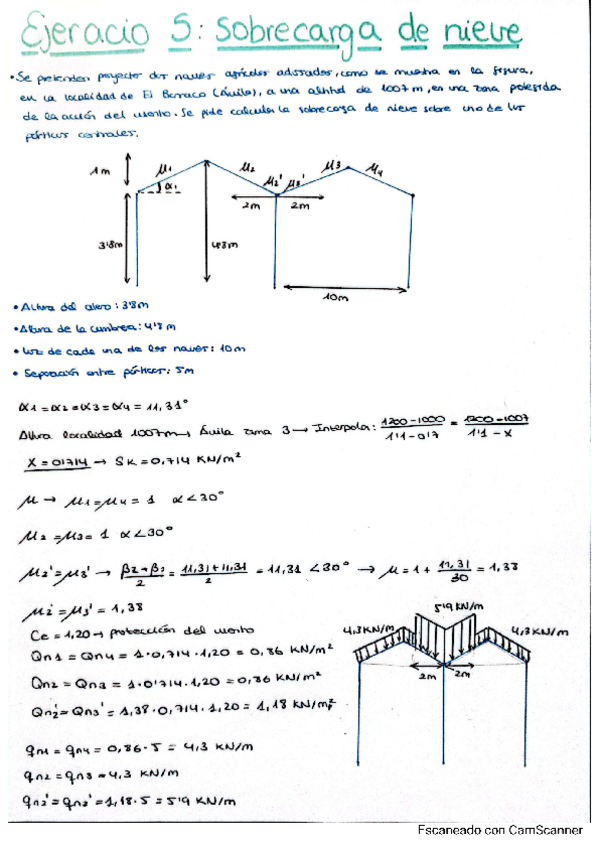 Ejercicio 5: Sobrecarga de nieve
• Se pretenden proyectar dos naves agrícolas adosadas, como se muestra en la figura,
en la localidad de El Barraco (Ávila), a una altitud de 1007 m, en una zona protegida
de la acción del viento. Se pide calcular la sobrecarga de nieve sobre uno de los
pórticos centrales.
1m μ1 μ2 μ3 μ4
α1 μ2' μ3'
2m 2m
3'8m 4'8m
10m
• Altura del alero: 3'8m
• Altura de la cumbrea: 4'8 m
• Luz de cada una de las naves: 10m
• Separación entre pórticos: 5m
α1 = α2 = α3 = α4 = 11,31°
Altura localidad 1007m → Ávila zona 3 → Interpola: 1200-1000 / 1'1-0'7 = 1200-1007 / 1'1-x
X = 0'714 → Sk = 0,714 KN/m²
μ → μ1 = μ4 = 1 α<30°
μ2 = μ3 = 1 α<30°
μ2' = μ3' → β2+β3 / 2 = 11,31+11,31 / 2 = 11,31 <30° → μ = 1 + 11,31 / 30 = 1,38
μ2' = μ3' = 1,38
Ce = 1,20 → protección del viento
Qn1 = Qn4 = 1·0,714·1,20 = 0,86 KN/m²
Qn2 = Qn3 = 1·0'714·1,20 = 0,86 KN/m²
Qn2' = Qn3' = 1,38·0,714·1,20 = 1,18 KN/m²
qn1 = qn4 = 0,86·5 = 4,3 KN/m
qn2 = qn3 = 4,3 KN/m
qn2' = qn3' = 1,18·5 = 5'9 KN/m
5'9 KN/m
4,3KN/m 4,3KN/m
2m 2m
Escaneado con CamScanner